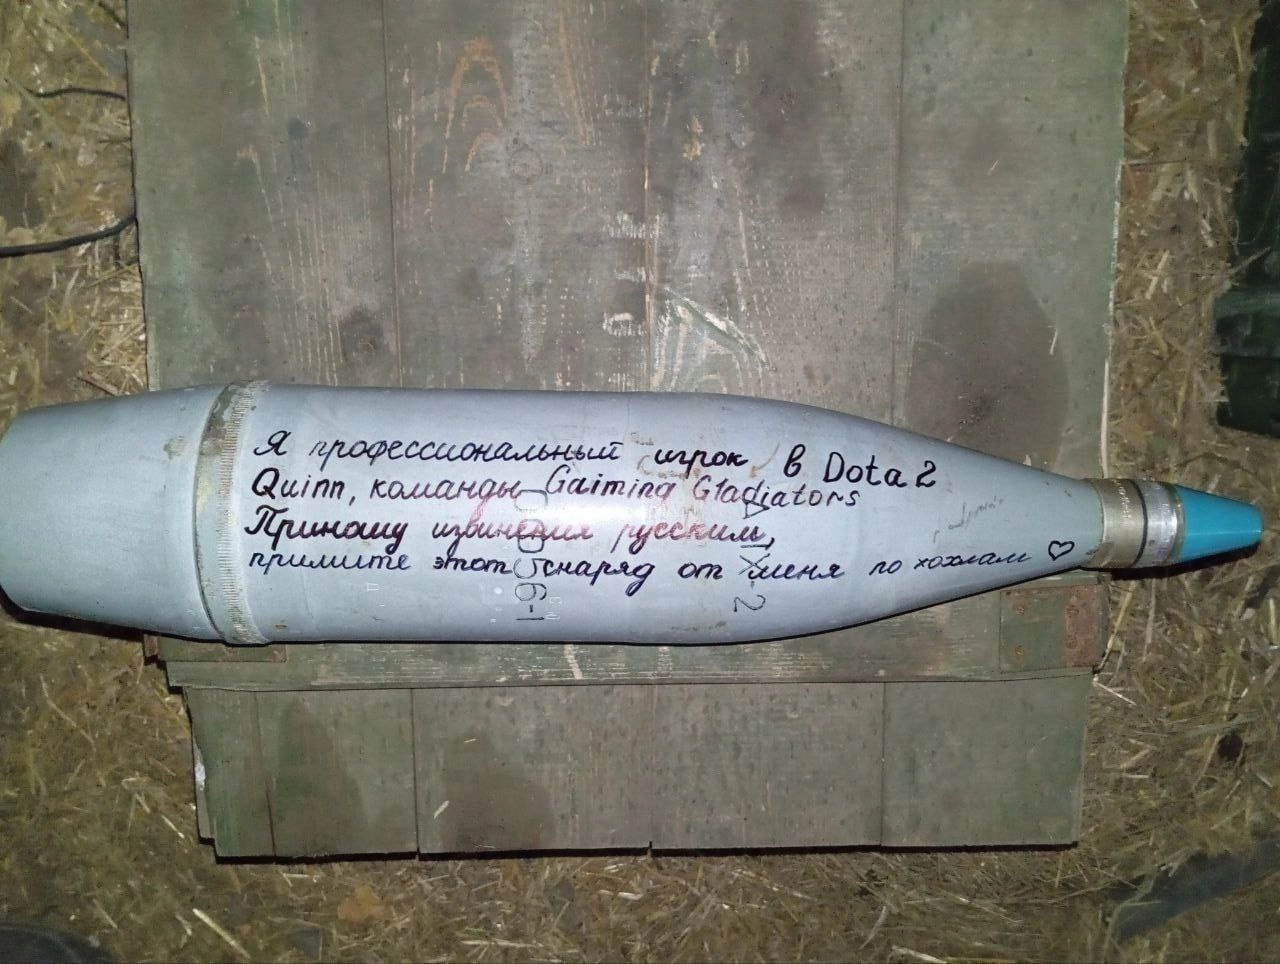 Я профессиональный игрок в Dota 2
Quinn, команды Gaiming Gladiators
Приношу извинения русским,
примите этот снаряд от меня по хохлам ♡